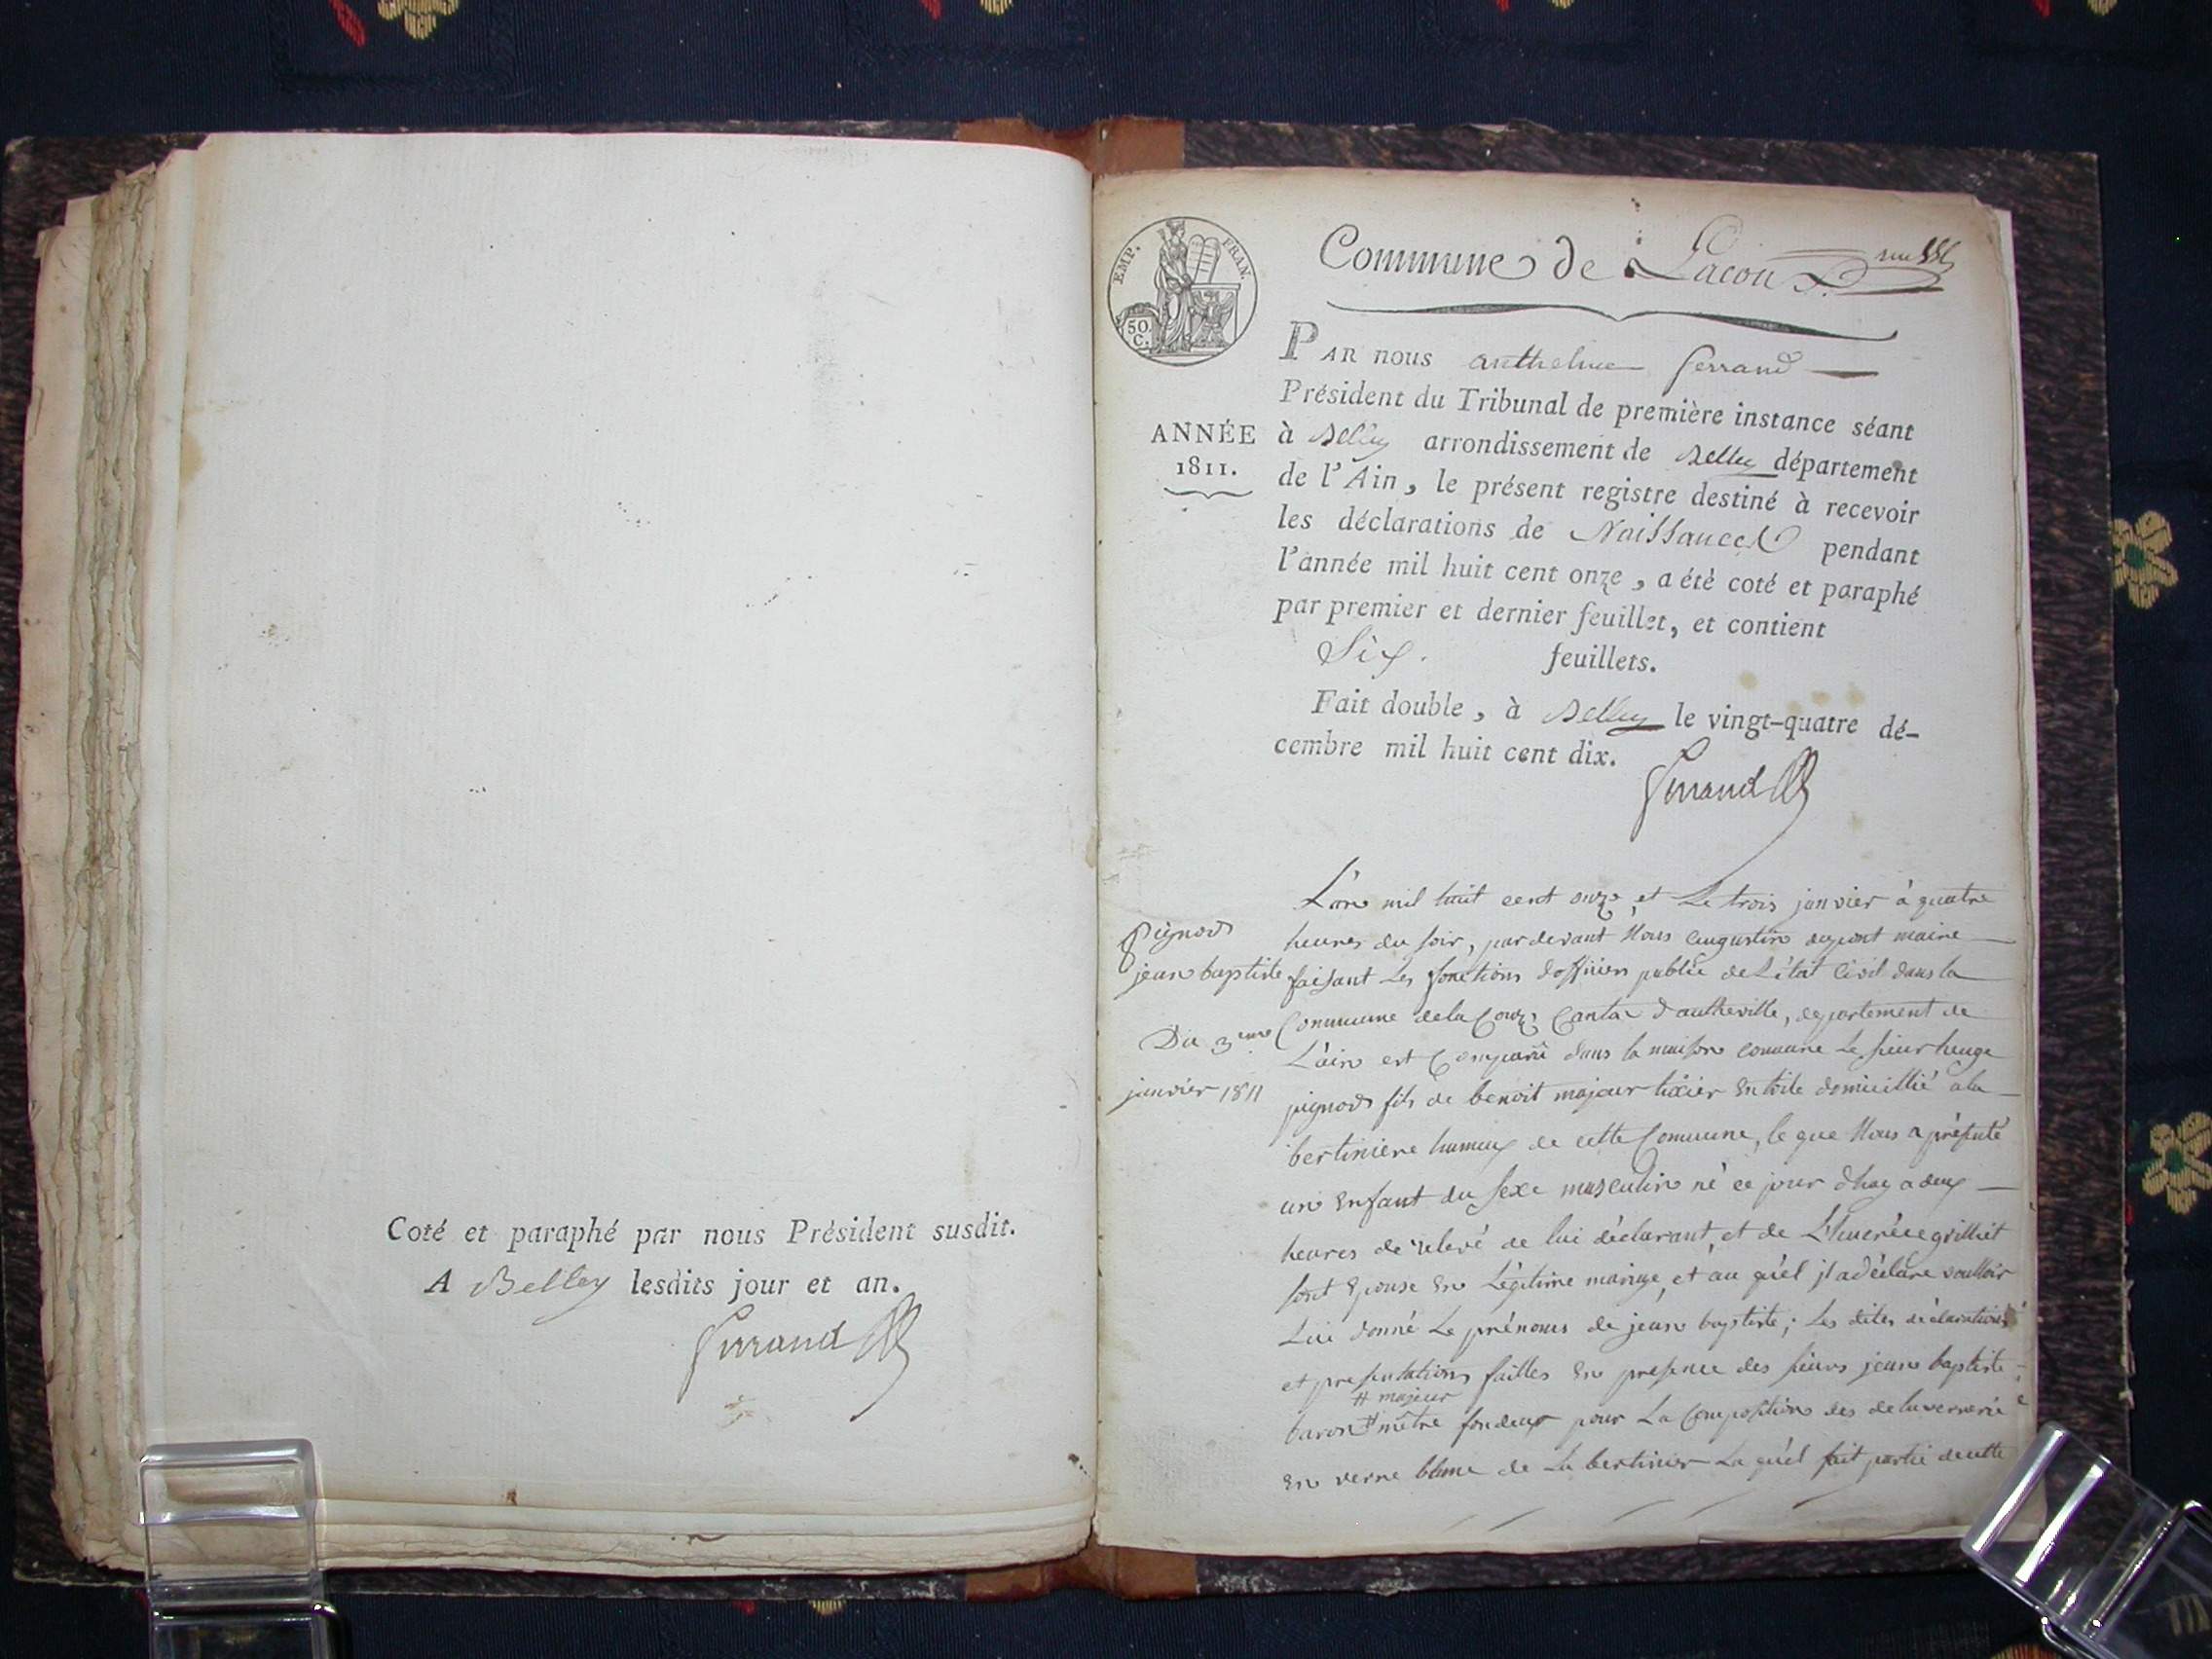 Coté et paraphé par nous Président susdit.
A Belley lesdits jour et an.
Ferrand
EMP. FRAN.
50 C.
Commune de Lacoux
ANNÉE
1811.
PAR nous anthelme ferrand
Président du Tribunal de première instance séant
à Belley arrondissement de Belley département
de l'Ain, le présent registre destiné à recevoir
les déclarations de Naissances pendant
l'année mil huit cent onze, a été coté et paraphé
par premier et dernier feuillet, et contient
Six. feuillets.
Fait double, à Belley le vingt-quatre dé-
cembre mil huit cent dix.
Ferrand
pignod
jean baptiste
Du 3eme
janvier 1811
L'an mil huit cent onze, et Le trois janvier à quatre
heures du soir, pardevant Nous augustin maire
faisant Les fonctions d'officier public de L'état Civil dans la
Commune de la Coux Canton d'autheville, département de
L'ain est Comparû dans la maison comune Le sieur
pignod fils de benoit majeur tixier En toile domicillié a la
bertiniere hameux de cette Commune, le que Nous a présenté
un Enfant du sexe masculin né ce jour d'huy a deux
heures de relevé de lui déclarant, et de grilliet
sont Epouse En Légitime mariage, et au quel jl a déclare voulloir
Lui donné Le prénoms de jean baptiste; Les dites déclarations
et presentations failles En presence des sieurs jean baptiste
# majeur
baron # mêtre fondeur pour La Composition des de la verrerie
En verre blanc de La bertinier La quel fait partie de cette